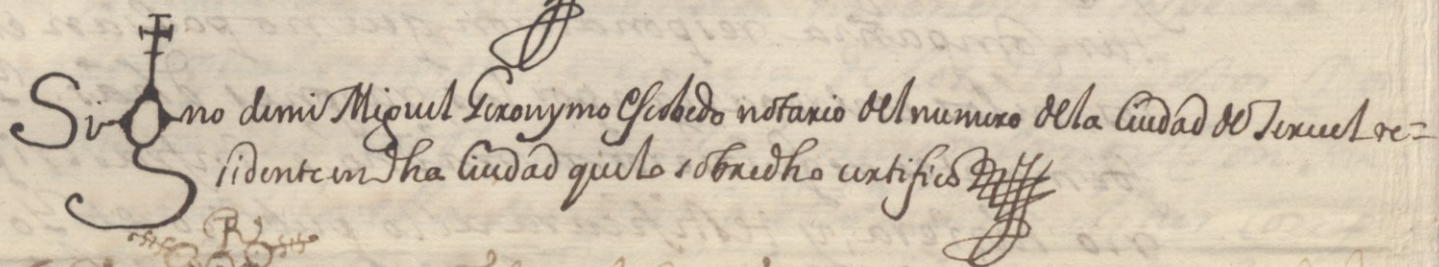 Signo demi Miguel Geronymo Escobedo notario del numero dela Ciudad de Teruel re=
sidente en dha Ciudad quelo sobredho certifico